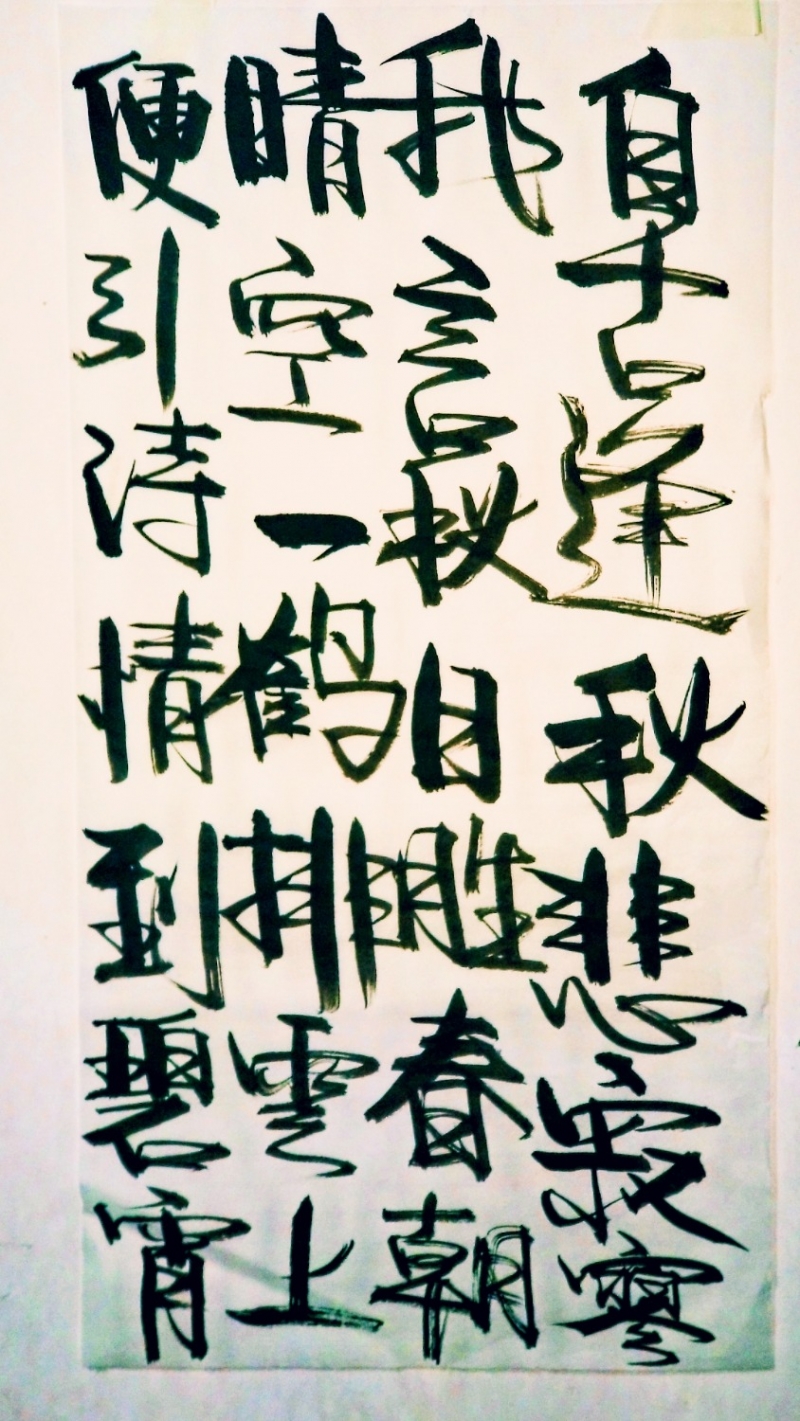 自古逢秋悲寂寥
我言秋日胜春朝
晴空一鹤排雲上
便引诗情到碧霄